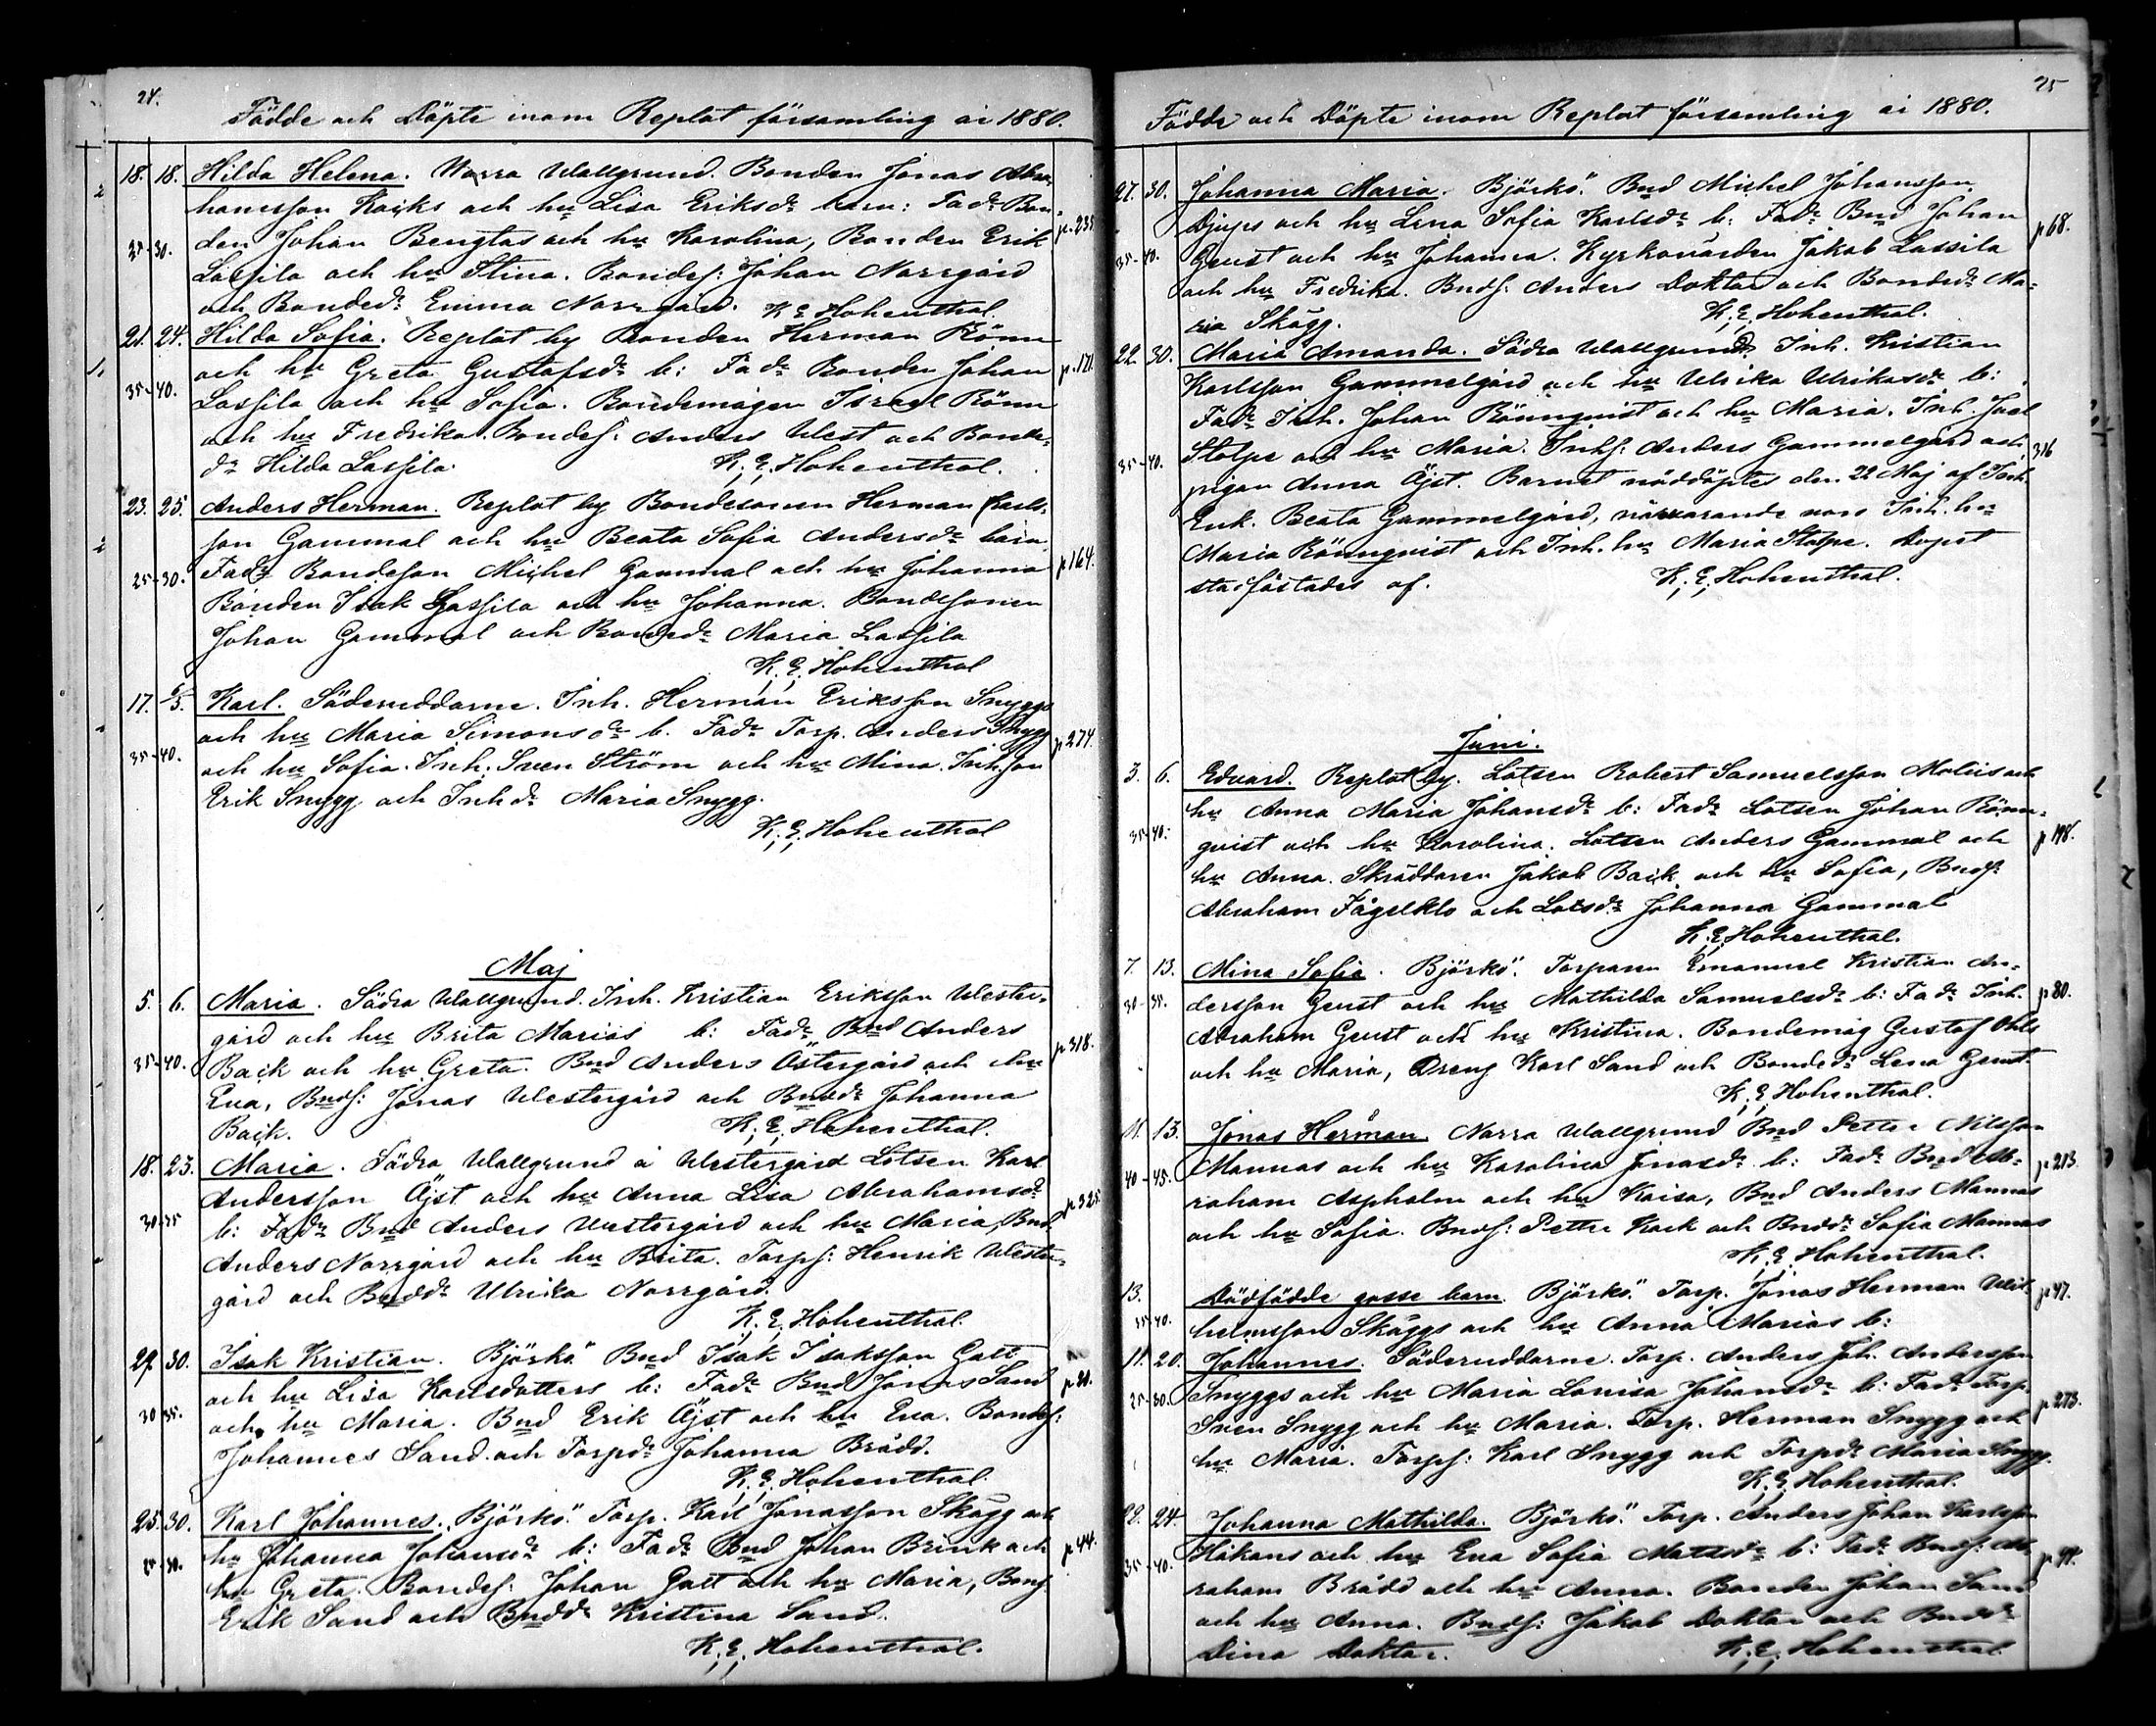 24.
Födde och Döpte inom Replot församling år 1880.
18. 18. Hilda Helena. Norra Wallgrund. Bonden Jonas Abra-
hamsson Kacks och hu Lisa Eriksdr barn: Fadr Bon-
25-30. den Johan Bengtas och hu Karolina, Bonden Erik p. 235
Lassila och hu Stina. Bondes: Johan Norrgård
och Bondedr Emma Norrgård. K. E. Hohenthal.
21. 24. Hilda Sofia. Replot by Bonden Herman Rönn
och hu Greta Gustafsdr b: Fadr Bonden Johan p. 171.
35-40. Lassila och hu Sofia. Bondemågen Israel Rönn
och hu Fredrika. Bondes: Anders West och Bonde-
dr Hilda Lassila. K. E. Hohenthal.
23. 25. Anders Herman. Replot by Bondesonen Herman Karls-
son Gammal och hu Beata Sofia Andersdr barn
25-30. Fadr Bondeson Michel Gammal och hu Johanna p 164.
Bonden Isak Lassila och hu Johanna. Bondesonen
Johan Gammal och Bondedr Maria Lassila
K. E. Hohenthal
17. 6/5. Karl. Söderuddarne. Inh. Herman Eriksson Snyggs
och hu Maria Simonsdr b. Fadr Torp. Anders Snygg p 274.
35-40. och hu Sofia. Inh. Sven Ström och hu Mina. Inh.son
Erik Snygg och Inhdr Maria Snygg.
K. E. Hohenthal
Maj
5. 6. Maria. Södra Wallgrund. Inh. Kristian Eriksson Wester-
gård och hu Brita Marias b: Fadr Bnd Anders
35-40. Back och hu Greta. Bnd Anders Östergård och hu p 318.
Eva, Bnds: Jonas Westergård och Bnddr Johanna
Back. K. E. Hohenthal.
18. 23. Maria. Södra Wallgrund å Westergård Lotsen Karl
Andersson Öjst och hu Anna Lisa Abrahamsdr
30-35 b: Fadr Bnd Anders Westergård och hu Maria, Bnd p 325.
Anders Norrgård och hu Brita. Torps: Henrik Wester-
gård och Bnddr Ulrika Norrgård.
K. E. Hohenthal
29. 30. Isak Kristian. Björkö. Bnd Isak Isaksson Gatt
och hu Lisa Karlsdotters b: Fadr Bnd Jonas Sand
30 35. och hu Maria. Bnd Erik Öjst och hu Eva. Bondes:
Johannes Sand och Torpdr Johanna Brådd.
K. E. Hohenthal.
25. 30. Karl Johannes. Björkö. Torp. Karl Jonasson Skågg och
hu Johanna Johansdr b: Fadr Bnd Johan Brink och p. 44.
25-30. hu Greta. Bondes: Johan Gatt och hu Maria, Bons
Erik Sand och Bnddr Kristina Sand.
K. E. Hohenthal.
25
Födde och Döpte inom Replot församling år 1880.
27. 30. Johanna Maria. Björkö. Bnd Michel Johansson
Djups och hu Lena Sofia Karlsdr b: Fadr Bnd Johan p 68.
35-40. Geust och hu Johanna. Kyrkovärden Jakob Lassila
och hu Fredrika. Bnds: Anders Doktar och Bondedr Ma-
ria Skågg. K. E. Hohenthal.
22. 30. Maria Amanda. Södra Wallgrund. Inh. Kristian
Karlsson Gammelgård och hu Ulrika Ulrikasdr b:
Fadr Inh. Johan Rönnqvist och hu Maria. Inh. Joel
35-40. Stolpe och hu Maria. Inhs: Anders Gammelgård och 316
pigan Anna Öjst. Barnet nöddöptes den 22 Maj af Inh.
Enk. Beata Gammelgård, närvarande voro Inh. hu
Maria Rönnqvist och Inh. hu Maria Stolpe. Dopet
stadfästades af. K. E. Hohenthal.
Juni.
3. 6. Edvard. Replot by. Lotsen Robert Samuelsson Molis och
hu Anna Maria Johansdr b: Fadr Lotsen Johan Rönn-
35-40. qvist och hu Karolina. Lotsen Anders Gammal och p 198.
hu Anna. Skräddaren Jakob Back och hu Sofia, Bnds:
Abraham Fågelklo och Lotsdr Johanna Gammal
K. E. Hohenthal.
7. 13. Mina Sofia. Björkö. Torparen Emanuel Kristian An-
30-35. dersson Geust och hu Mathilda Samuelsdr b: Fadr Inh. p 80.
Abraham Geust och hu Kristina. Bondemåg Gustaf Ohls
och hu Maria, Dreng Karl Sand och Bondedr Lena Geust.
K. E. Hohenthal.
11. 13. Jonas Herman. Norra Wallgrund Bnd Petter Nilsson
40-45. Mannas och hu Karolina Jonasdr b: Fadr Bnd Ab- p 213
raham Aspholm och hu Kaisa, Bnd Anders Mannas
och hu Sofia. Bnds: Petter Kack och Bnddr Sofia Mannas
K. E. Hohenthal.
13. Dödfödde gosse barn. Björkö. Torp. Jonas Herman Wil- p 47.
35-40. helmsson Skåggs och hu Anna Marias b:
11. 20. Johannes. Söderuddarne. Torp. Anders Joh. Andersson
25-30. Snyggs och hu Maria Lovisa Johansdr b: Fadr Torp. p 273.
Sven Snygg och hu Maria. Torp. Herman Snygg och
hu Maria. Torps: Karl Snygg och Torpdr Maria Snygg.
K. E. Hohenthal.
22. 24. Johanna Mathilda. Björkö. Torp. Anders Johan Karlsson
35-40. Håkans och hu Eva Sofia Matsdr b: Fadr Bnds: Ab-
raham Brådd och hu Anna. Bonden Johan Sand
och hu Anna. Bnds: Jakob Doktar och Bnddr
Dina Doktar. K. E. Hohenthal